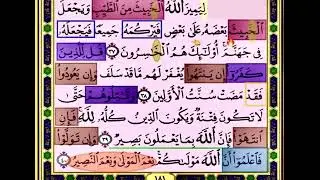 لِيَمِيزَ ٱللَّهُ ٱلْخَبِيثَ مِنَ ٱلطَّيِّبِ وَيَجْعَلَ
ٱلْخَبِيثَ بَعْضَهُۥ عَلَىٰ بَعْضٍ فَيَرْكُمَهُۥ جَمِيعًا فَيَجْعَلَهُۥ
فِى جَهَنَّمَ أُو۟لَٰٓئِكَ هُمُ ٱلْخَٰسِرُونَ ٣٧ قُل لِّلَّذِينَ
كَفَرُوٓا۟ إِن يَنتَهُوا۟ يُغْفَرْ لَهُم مَّا قَدْ سَلَفَ وَإِن يَعُودُوا۟
فَقَدْ مَضَتْ سُنَّتُ ٱلْأَوَّلِينَ ٣٨ وَقَٰتِلُوهُمْ حَتَّىٰ
لَا تَكُونَ فِتْنَةٌ وَيَكُونَ ٱلدِّينُ كُلُّهُۥ لِلَّهِ فَإِنِ
ٱنتَهَوْا۟ فَإِنَّ ٱللَّهَ بِمَا يَعْمَلُونَ بَصِيرٌ ٣٩ وَإِن تَوَلَّوْا۟
فَٱعْلَمُوٓا۟ أَنَّ ٱللَّهَ مَوْلَىٰكُمْ نِعْمَ ٱلْمَوْلَىٰ وَنِعْمَ ٱلنَّصِيرُ ٤٠
١٨١